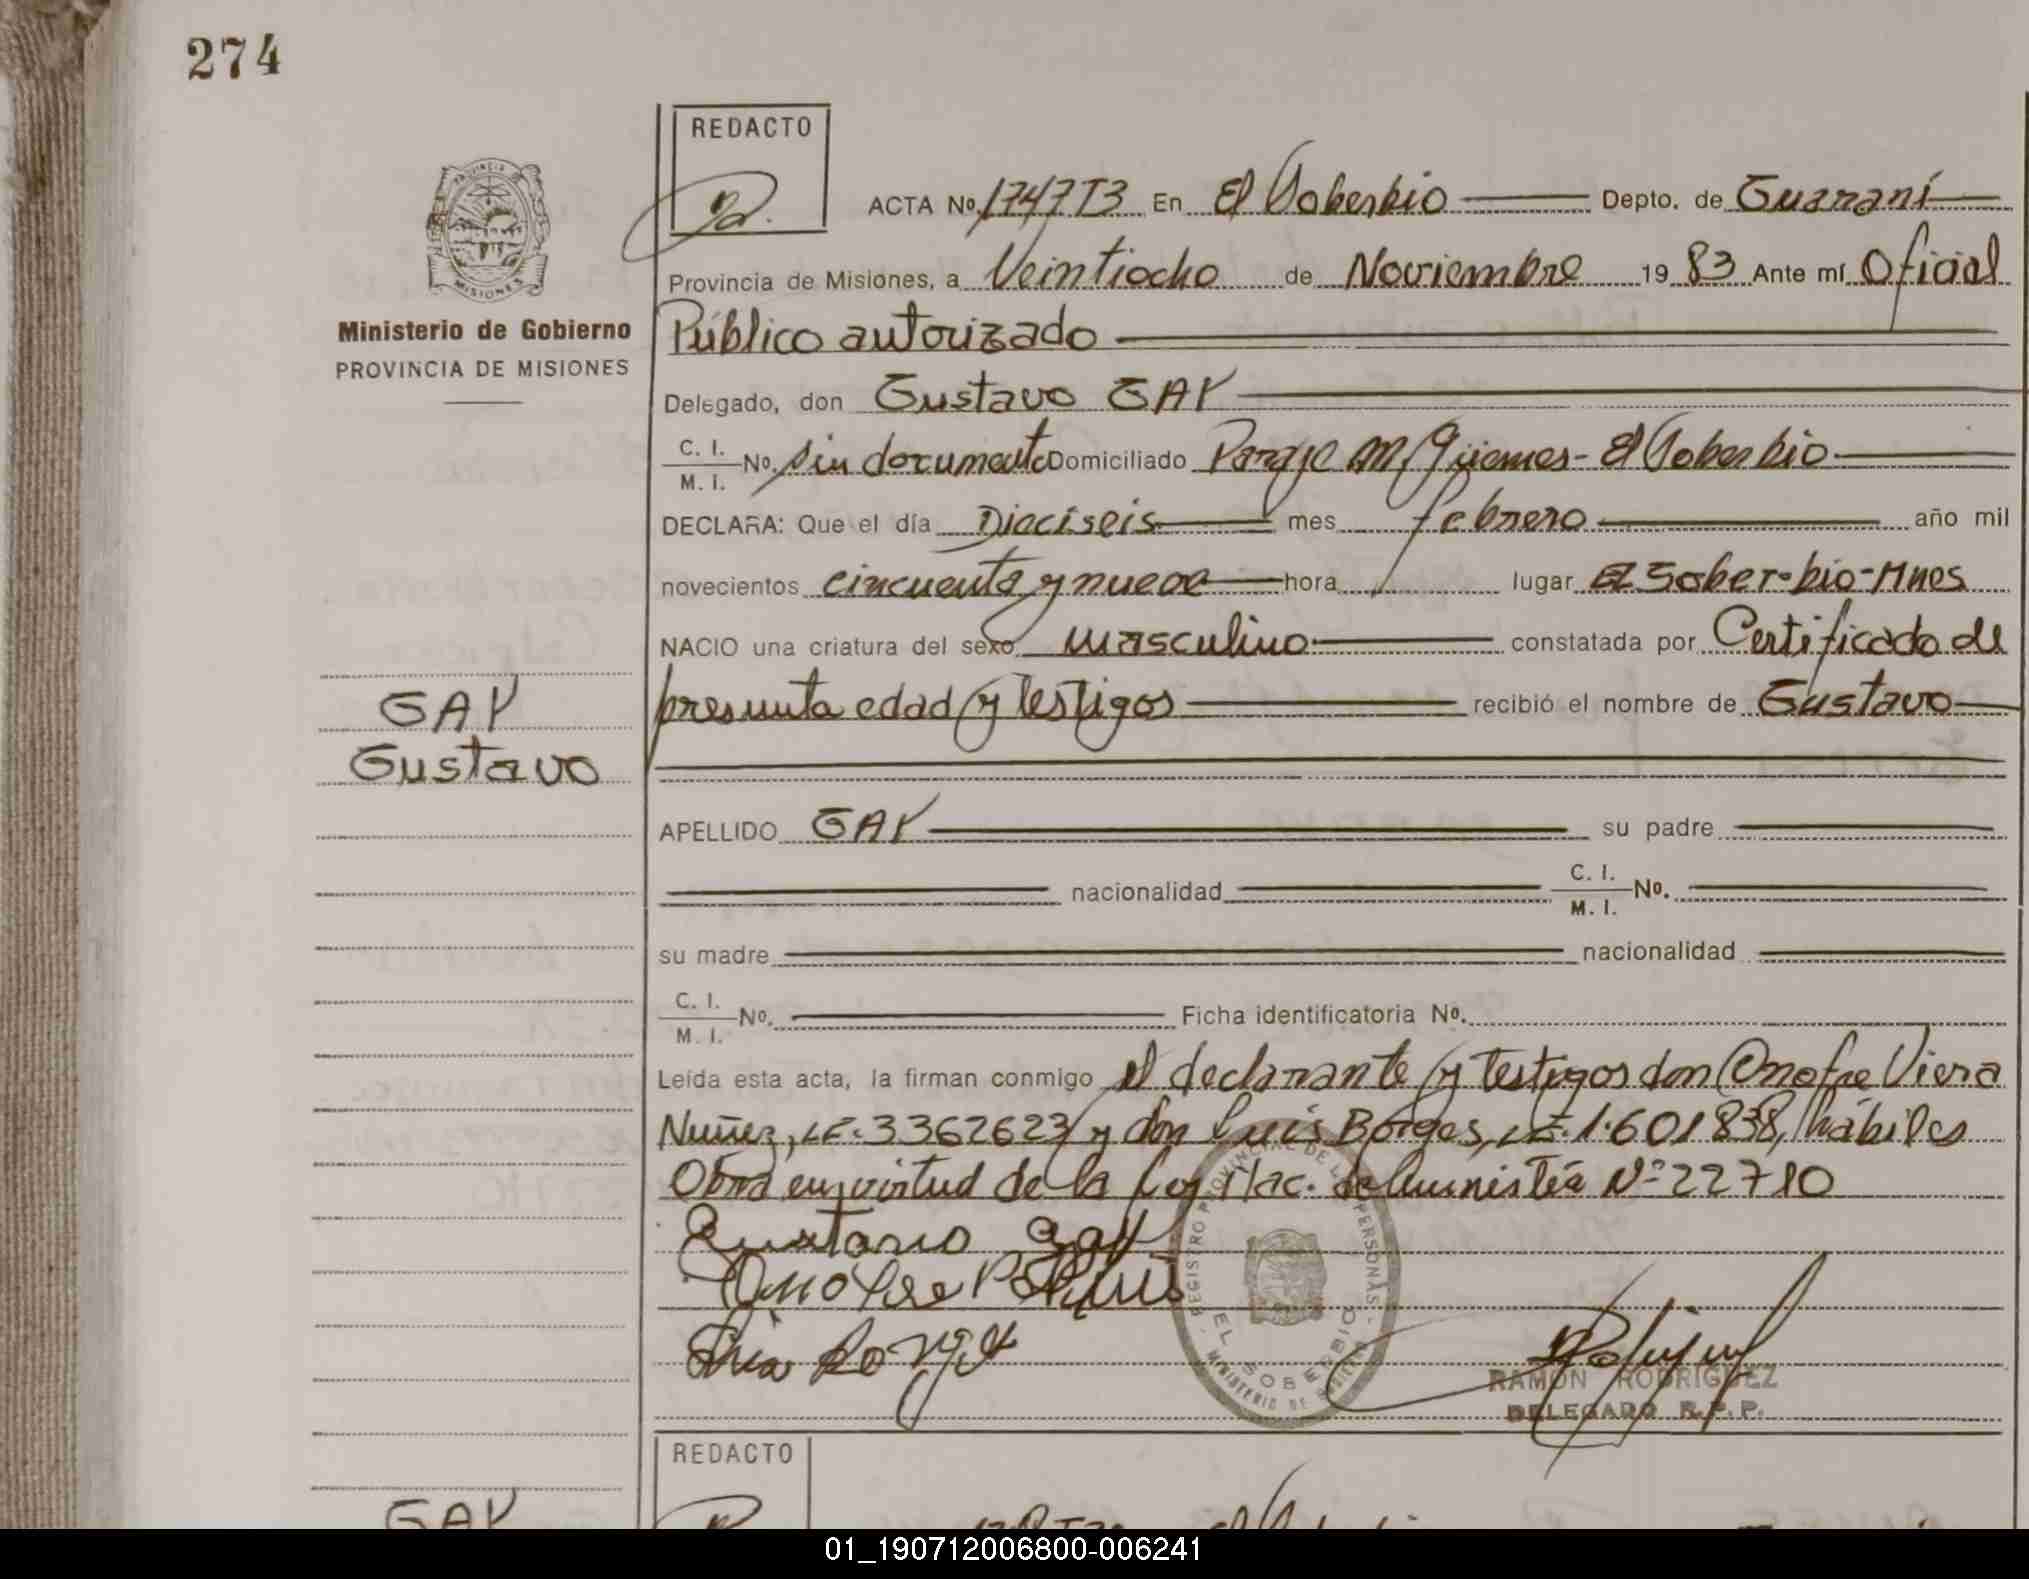 274
REDACTO
ACTA Nº. 1747T3 En El Soberbio Depto. de Guaraní
Provincia de Misiones, a Veintiocho de Noviembre 1983 Ante mí Oficial
Público autorizado
Delegado, don Gustavo GAY
C. I. M. I. Nº. sin documento Domiciliado Paraje M, Güemes - El Soberbio
DECLARA: Que el día Dieciseis mes febrero año mil
novecientos cincuenta y nueve hora lugar El Soberbio-Mnes
NACIO una criatura del sexo masculino constatada por Certificado de
presunta edad y testigos recibió el nombre de Gustavo
APELLIDO GAY su padre
nacionalidad C. I. M. I. Nº.
su madre nacionalidad
C. I. M. I. Nº. Ficha identificatoria Nº.
Leída esta acta, la firman conmigo el declarante y testigos don Onofre Viera
Nuñez, LE. 3362623 y don Luis Borges, LE. 1.601838, hábiles
Obra en virtud de la Ley Nac. de Amnistía Nº 22710
Gustavo gay
PROVINCIA DE MISIONES
Ministerio de Gobierno
PROVINCIA DE MISIONES
GAY
Gustavo
REGISTRO PROVINCIAL DE LAS PERSONAS
EL SOBERBIO
MINISTERIO DE GOBIERNO
RAMON RODRIGUEZ
DELEGADO R.P.P.
REDACTO
GAY
01_190712006800-006241